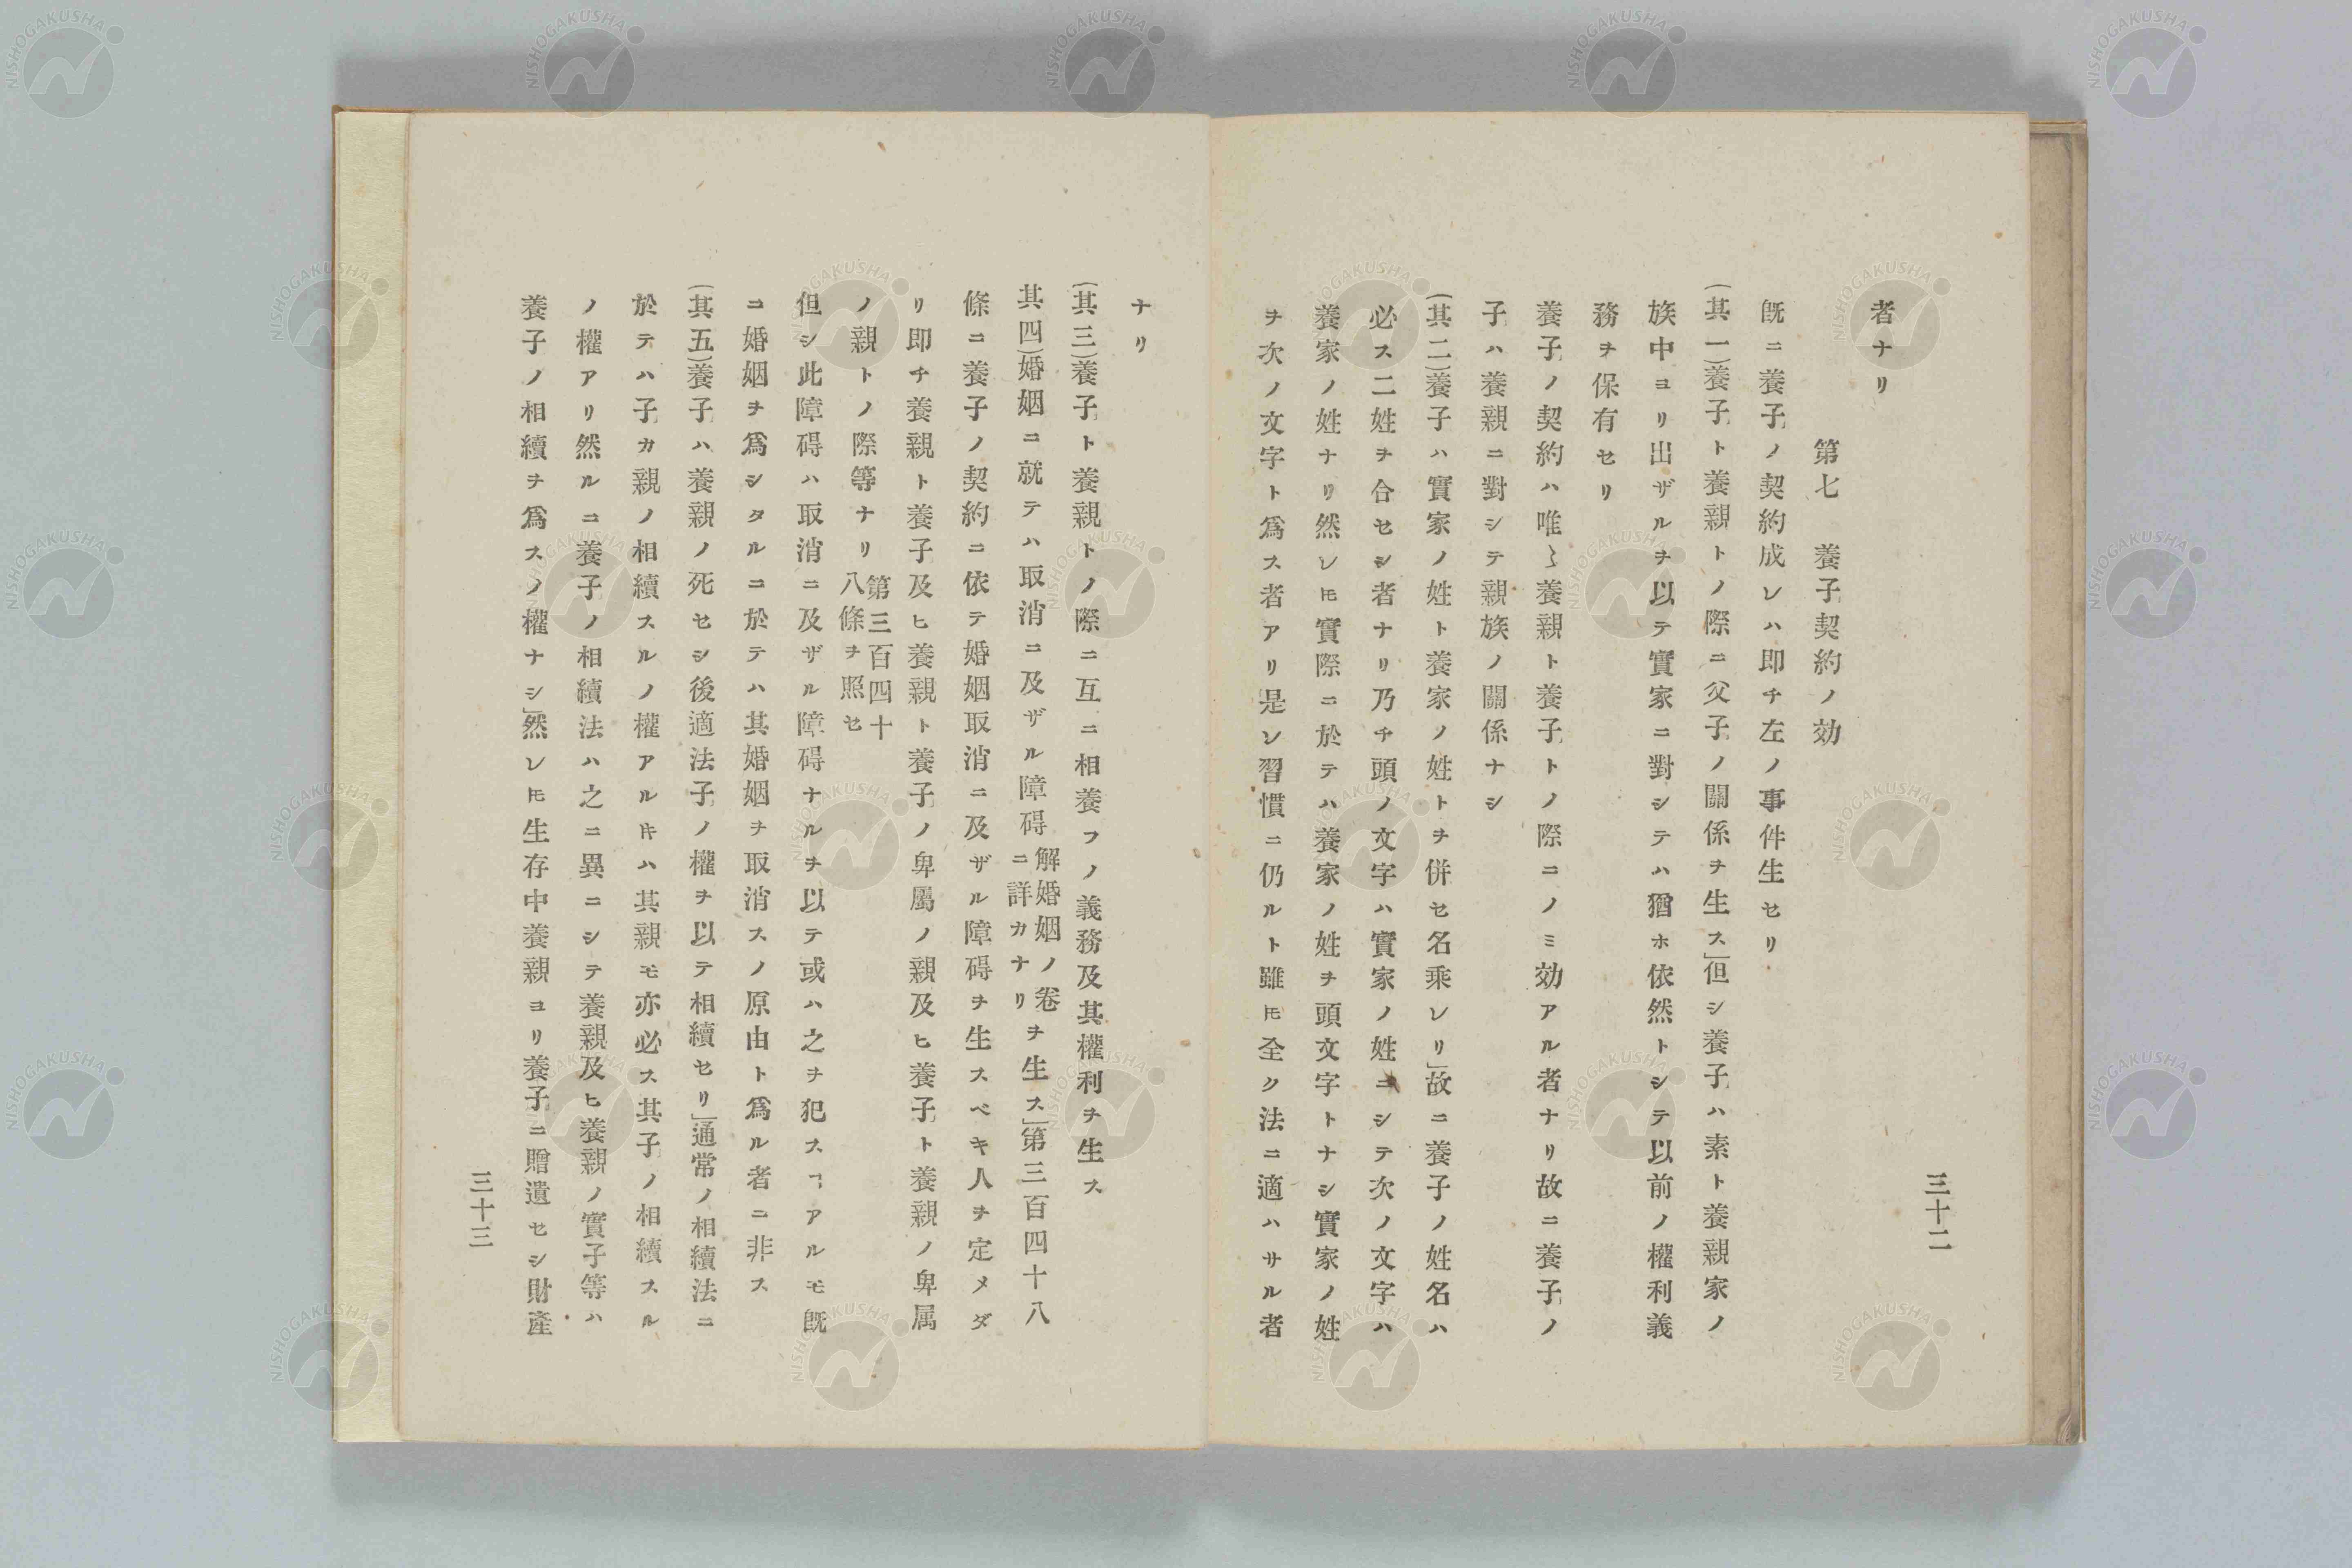 三十二
者ナリ
第七　養子契約ノ効
既ニ養子ノ契約成レハ即チ左ノ事件生セリ
(其一)養子ト養親トノ際ニ父子ノ關係ヲ生ス」但シ養子ハ素ト養親家ノ
族中ヨリ出ザルヲ以テ實家ニ對シテハ猶ホ依然トシテ以前ノ權利義
務ヲ保有セリ
養子ノ契約ハ唯〻養親ト養子トノ際ニノミ効アル者ナリ故ニ養子ノ
子ハ養親ニ對シテ親族ノ關係ナシ
(其二)養子ハ實家ノ姓ト養家ノ姓トヲ併セ名乘レリ」故ニ養子ノ姓名ハ
必ス二姓ヲ合セシ者ナリ乃チ頭ノ文字ハ實家ノ姓ニシテ次ノ文字ハ
養家ノ姓ナリ然レ𪜈實際ニ於テハ養家ノ姓ヲ頭文字トナシ實家ノ姓
ヲ次ノ文字ト爲ス者アリ是レ習慣ニ仍ルト雖𪜈全ク法ニ適ハサル者
ナリ
(其三)養子ト養親トノ際ニ互ニ相養フノ義務及其權利ヲ生ス
其四)婚姻ニ就テハ取消ニ及ザル障碍解婚姻ノ卷ニ詳カナリヲ生ス」第三百四十八
條ニ養子ノ契約ニ依テ婚姻取消ニ及ザル障碍ヲ生スベキ人ヲ定メダ
リ即チ養親ト養子及ヒ養親ト養子ノ卑屬ノ親及ヒ養子ト養親ノ卑属
ノ親トノ際等ナリ第三百四十八條ヲ照セ
但シ此障碍ハ取消ニ及ザル障碍ナルヲ以テ或ハ之ヲ犯スヿアルモ既
ニ婚姻ヲ爲シタルニ於テハ其婚姻ヲ取消スノ原由ト爲ル者ニ非ス
(其五)養子ハ養親ノ死セシ後適法子ノ權ヲ以テ相續セリ」通常ノ相續法ニ
於テハ子カ親ノ相續スルノ權アルキハ其親モ亦必ス其子ノ相續スル
ノ權アリ然ルニ養子ノ相續法ハ之ニ異ニシテ養親及ヒ養親ノ實子等ハ
養子ノ相續ヲ爲スノ權ナシ」然レ𪜈生存中養親ヨリ養子ニ贈遺セシ財產
三十三
NISHOGAKUSHA